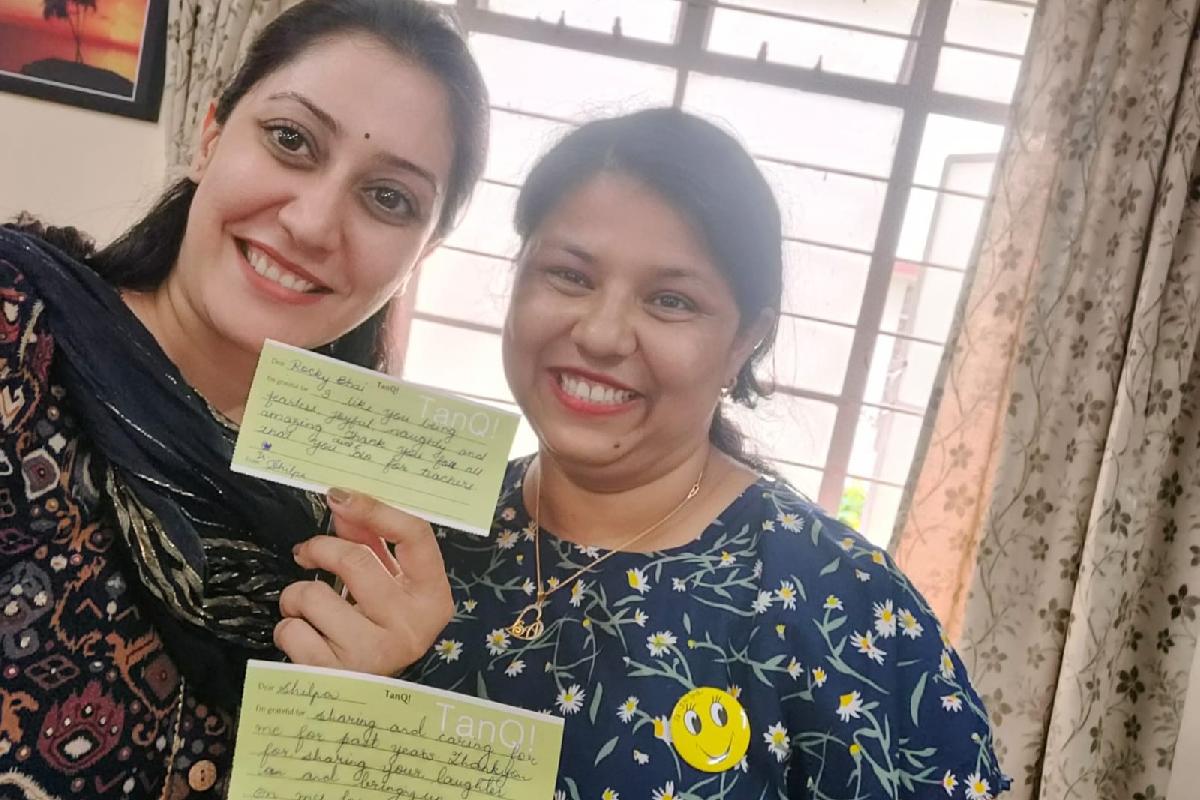 Dear Rocky Bhai TanQ!
TanQ!
I'm grateful for I like you being
fearless joyful naughty and
amazing Thank you for all
that you do for teachers
Shilpa
Dear Shilpa TanQ!
TanQ!
I'm grateful for sharing and caring for
me for past years. Thank you
for sharing your laughter
and
on my